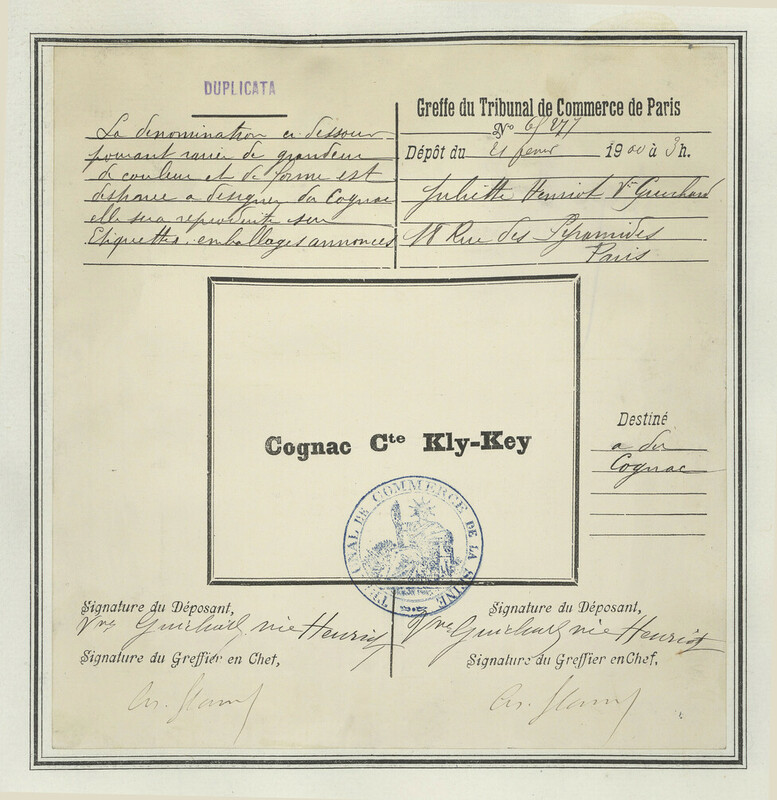 DUPLICATA
La denomination ci dessous
pouvant varier de grandeur
de couleur et de forme est
disposée a designer du Cognac
elle sera reproduite sur
Etiquettes, emballages annonces
Greffe du Tribunal de Commerce de Paris
No
Dépôt du 21 fevrier 1900 à 3h.
Juliette Henriot Ve Guichard
18 Rue des Pyramides
Paris
Cognac Cte Kly-Key
TRIBUNAL DE COMMERCE DE LA SEINE
Destiné
a du
Cognac
Signature du Déposant,
Vve Guichard née Henriot
Signature du Greffier en Chef,
Signature du Déposant,
Vve Guichard née Henriot
Signature du Greffier en Chef,